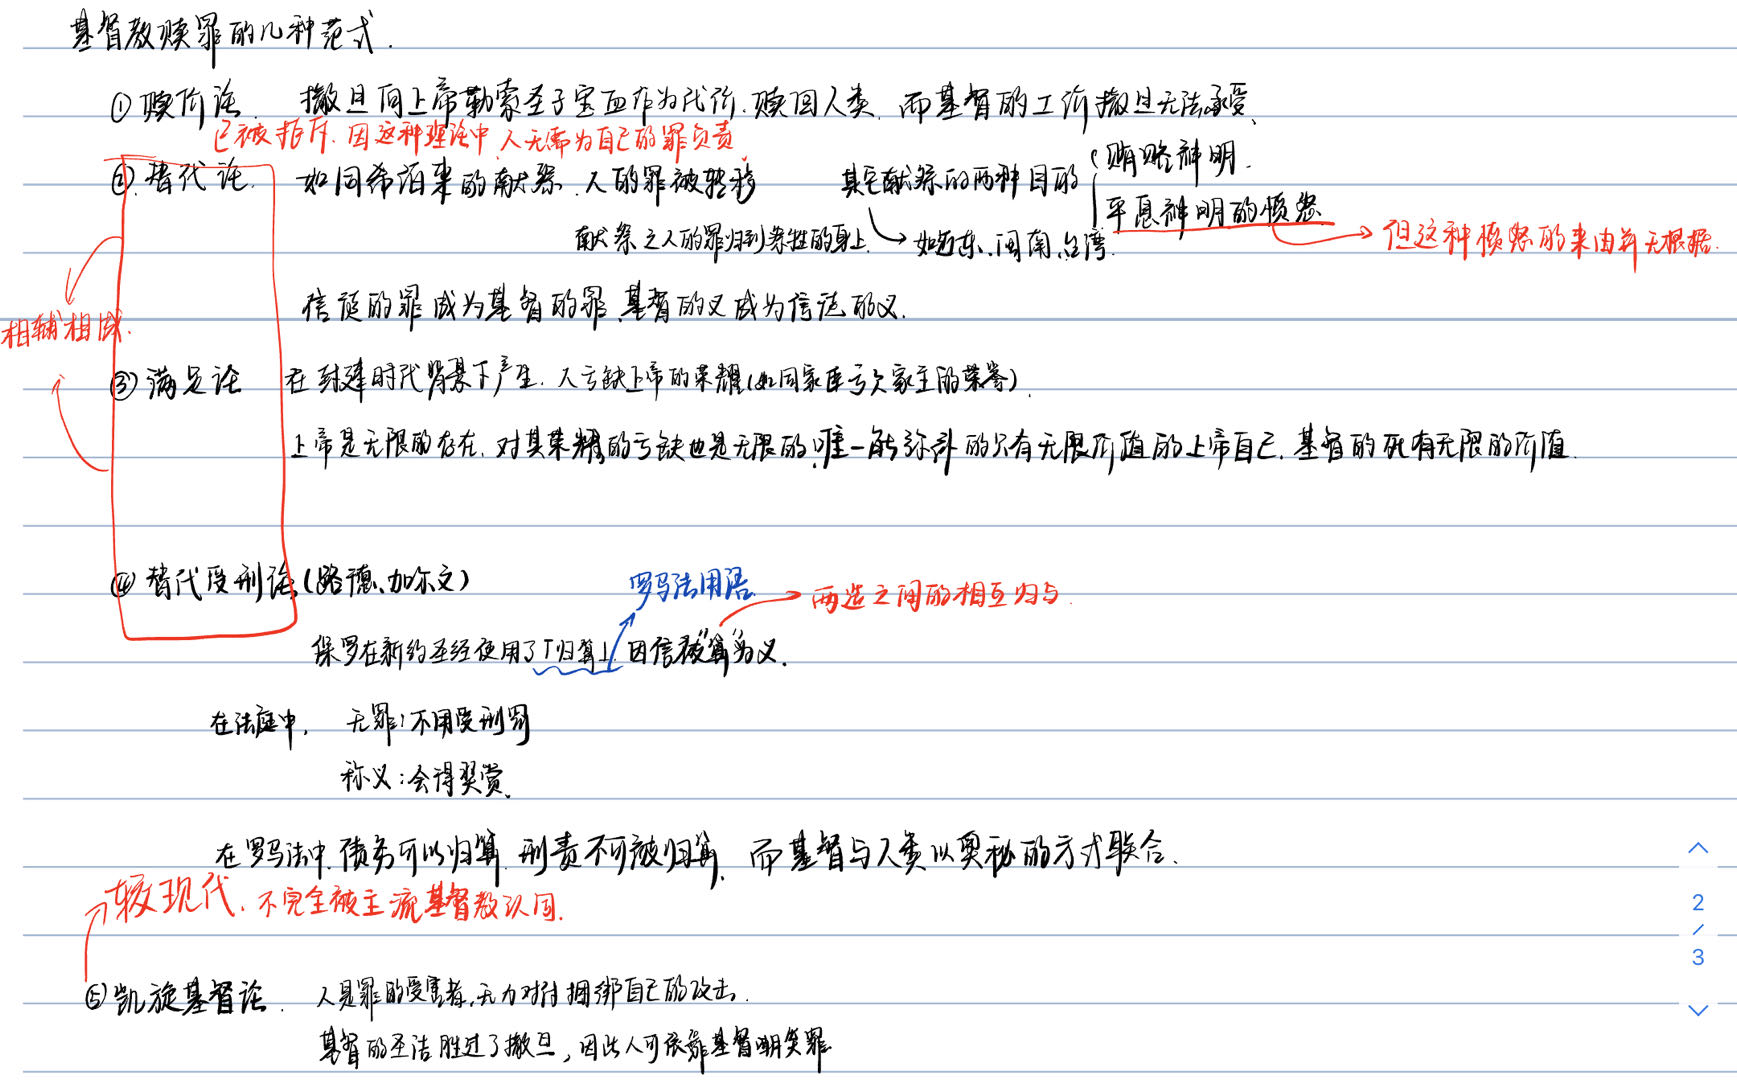 基督教赎罪的几种范式.
①赎价论. 撒旦向上帝勒索圣子宝血作为代价.赎回人类.而基督的工价撒旦无法承受.
已被排斥.因这种理论中,人无需为自己的罪负责.
②替代论. 如同希伯来的献祭.人的罪被转移 其它献祭的两种目的 贿赂神明.
平息神明的愤怒
献祭之人的罪归到祭牲的身上. 如近东、闽南、台湾. 但这种愤怒的来由并无根据.
信徒的罪成为基督的罪.基督的义成为信徒的义.
相辅相成.
③满足论 在封建时代背景下产生.人亏缺上帝的荣耀(如同家臣亏欠家主的荣誉).
上帝是无限的存在.对其荣耀的亏缺也是无限的.唯一能弥补的只有无限价值的上帝自己.基督的死有无限的价值.
④替代受刑论(路德、加尔文) 罗马法用语. 两造之间的相互归与.
保罗在新约圣经使用了「归算」.因信被"算"为义.
在法庭中, 无罪:不用受刑罚
称义:会得奖赏.
在罗马法中.债务可以归算.刑责不可被归算.而基督与人类以奥秘的方式联合.
较现代.不完全被主流基督教认同.
⑤凯旋基督论. 人是罪的受害者,无力对付捆绑自己的攻击.
基督的圣洁胜过了撒旦,因此人可依靠基督胜罪
2
/
3